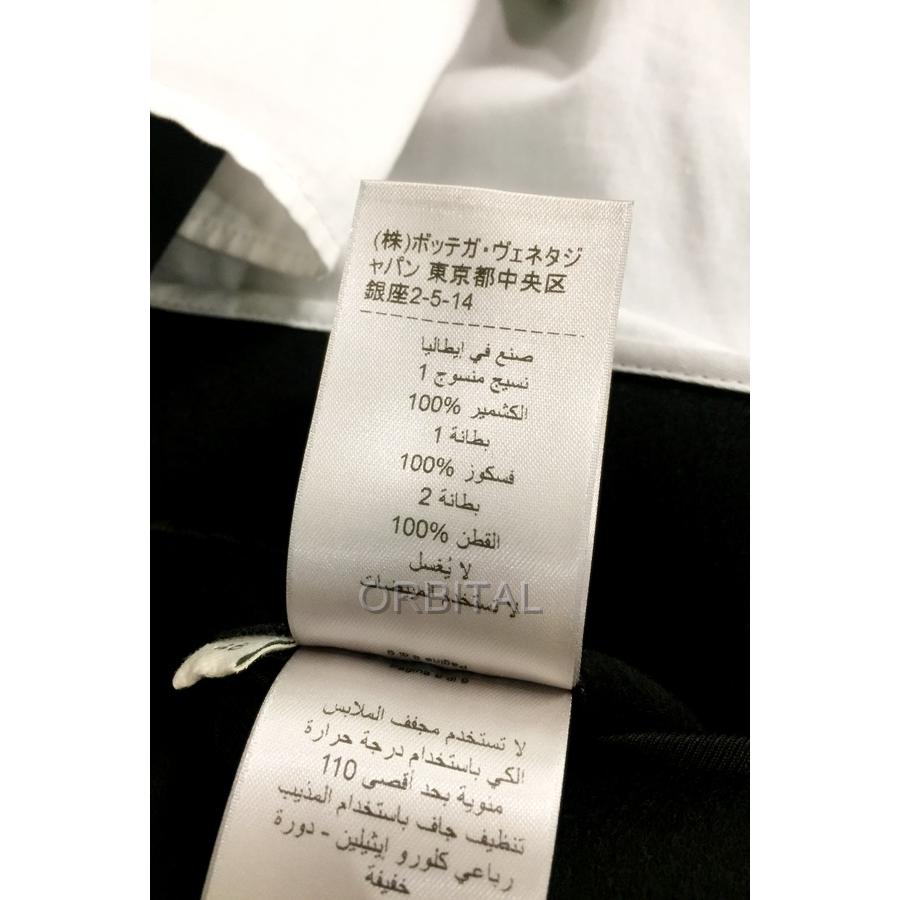 (株)ボッテガ・ヴェネタジ
ャパン 東京都中央区
銀座2-5-14
صنع في إيطاليا
نسيج منسوج 1
الكشمير 100%
بطانة 1
فسكوز 100%
بطانة 2
القطن 100%
لا يُغسل
لا تستخدم المبيضات
ORBITAL
لا تستخدم مجفف الملابس
الكي باستخدام درجة حرارة
مئوية بحد أقصى 110
تنظيف جاف باستخدام المذيب
رباعي كلورو إيثيلين - دورة
خفيفة